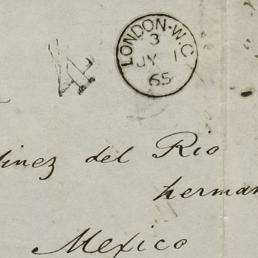 LONDON-W.C
3
JY 1
65
4
inez del Rio
herman
Mexico